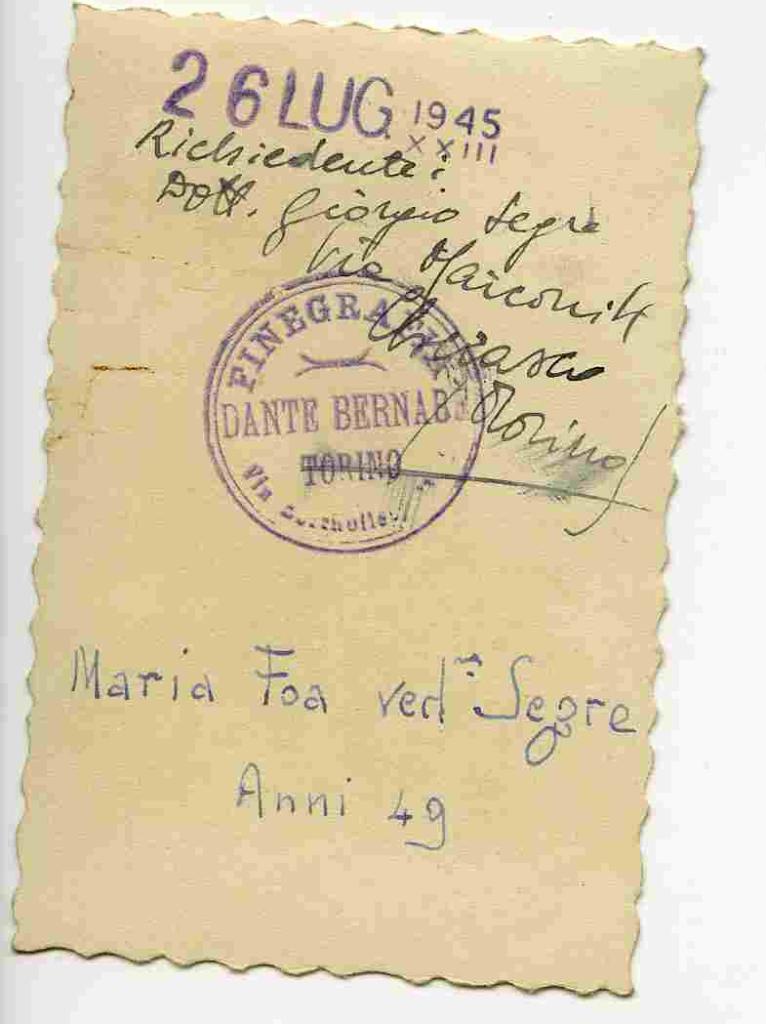 26 LUG. 1945
XXIII
Richiedente:
Dott. Giorgio Segre
Via Marconi 4
Chivasso
(Torino)
FINEGRAFIA
DANTE BERNABÒ
TORINO
Via
Maria Foa ved.ᵃ Segre
Anni 49